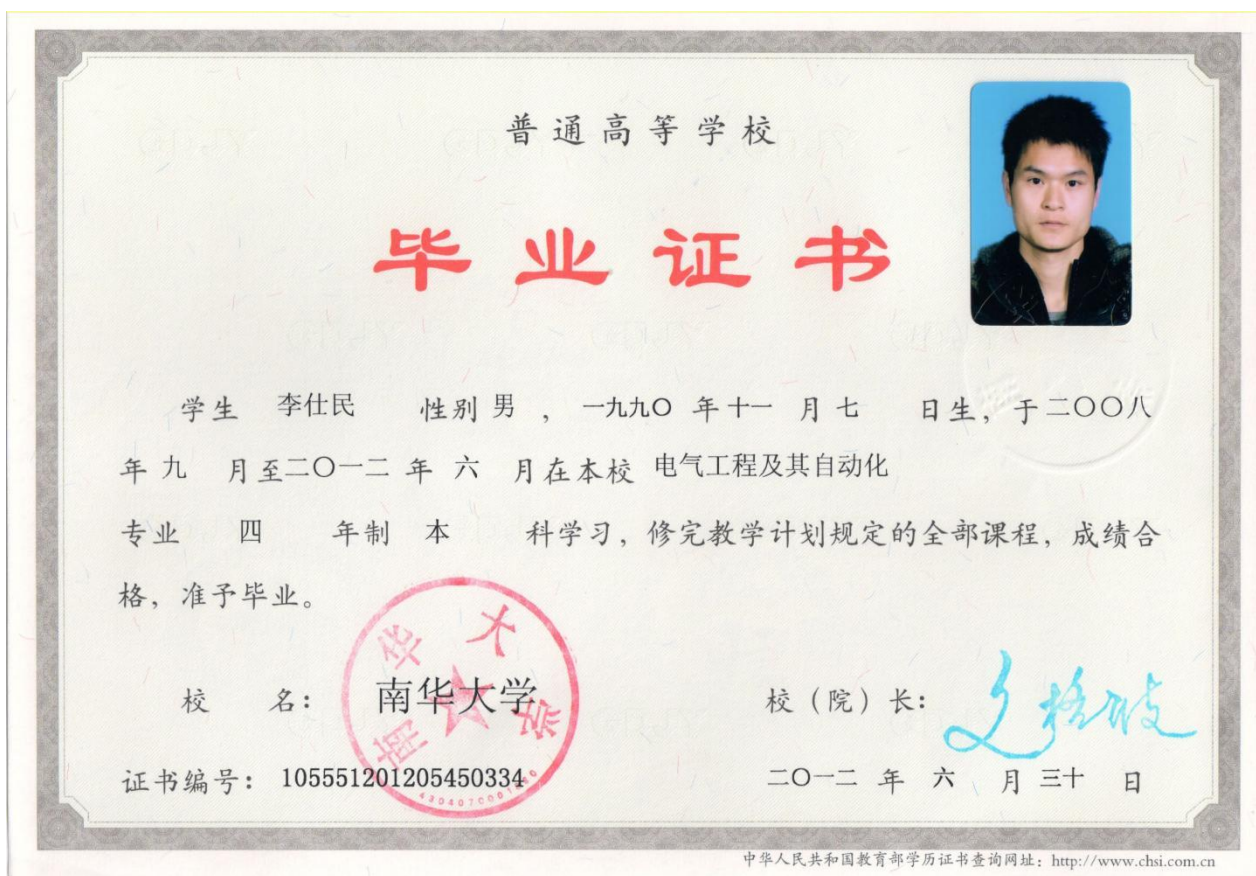 普通高等学校
毕业证书
学生 李仕民 性别 男 ， 一九九〇 年 十一 月 七 日生，于 二〇〇八
年 九 月至 二〇一二 年 六 月在本校 电气工程及其自动化
专业 四 年制 本 科学习，修完教学计划规定的全部课程，成绩合
格，准予毕业。
南华大学
校 名： 南华大学
校（院）长：
证书编号： 105551201205450334
二〇一二 年 六 月 三十 日
中华人民共和国教育部学历证书查询网址：http://www.chsi.com.cn